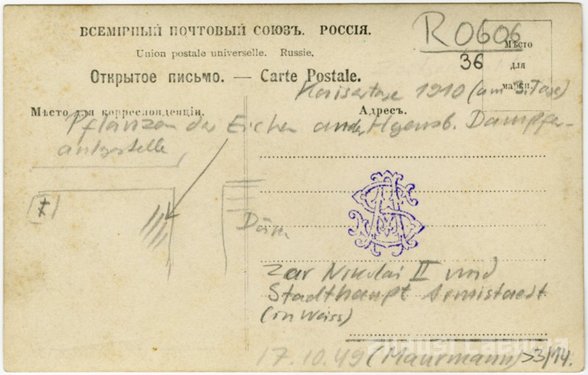 ВСЕМІРНЫЙ ПОЧТОВЫЙ СОЮЗЪ. РОССІЯ.
Union postale universelle. Russie.
Открытое письмо. — Carte Postale.
R0606
36
Мѣсто
для
марки
Kaisertage 1910 (am 3. Tage)
Мѣсто для корреспонденціи.
Адресъ.
Pflanzen der Eichen an der Hgensb. Dampfer-
anlegestelle
Zar Nikolai II und
Stadthaupt Armistaedt
(in weiss)
17.10.49 (Maurmann) 3/14.